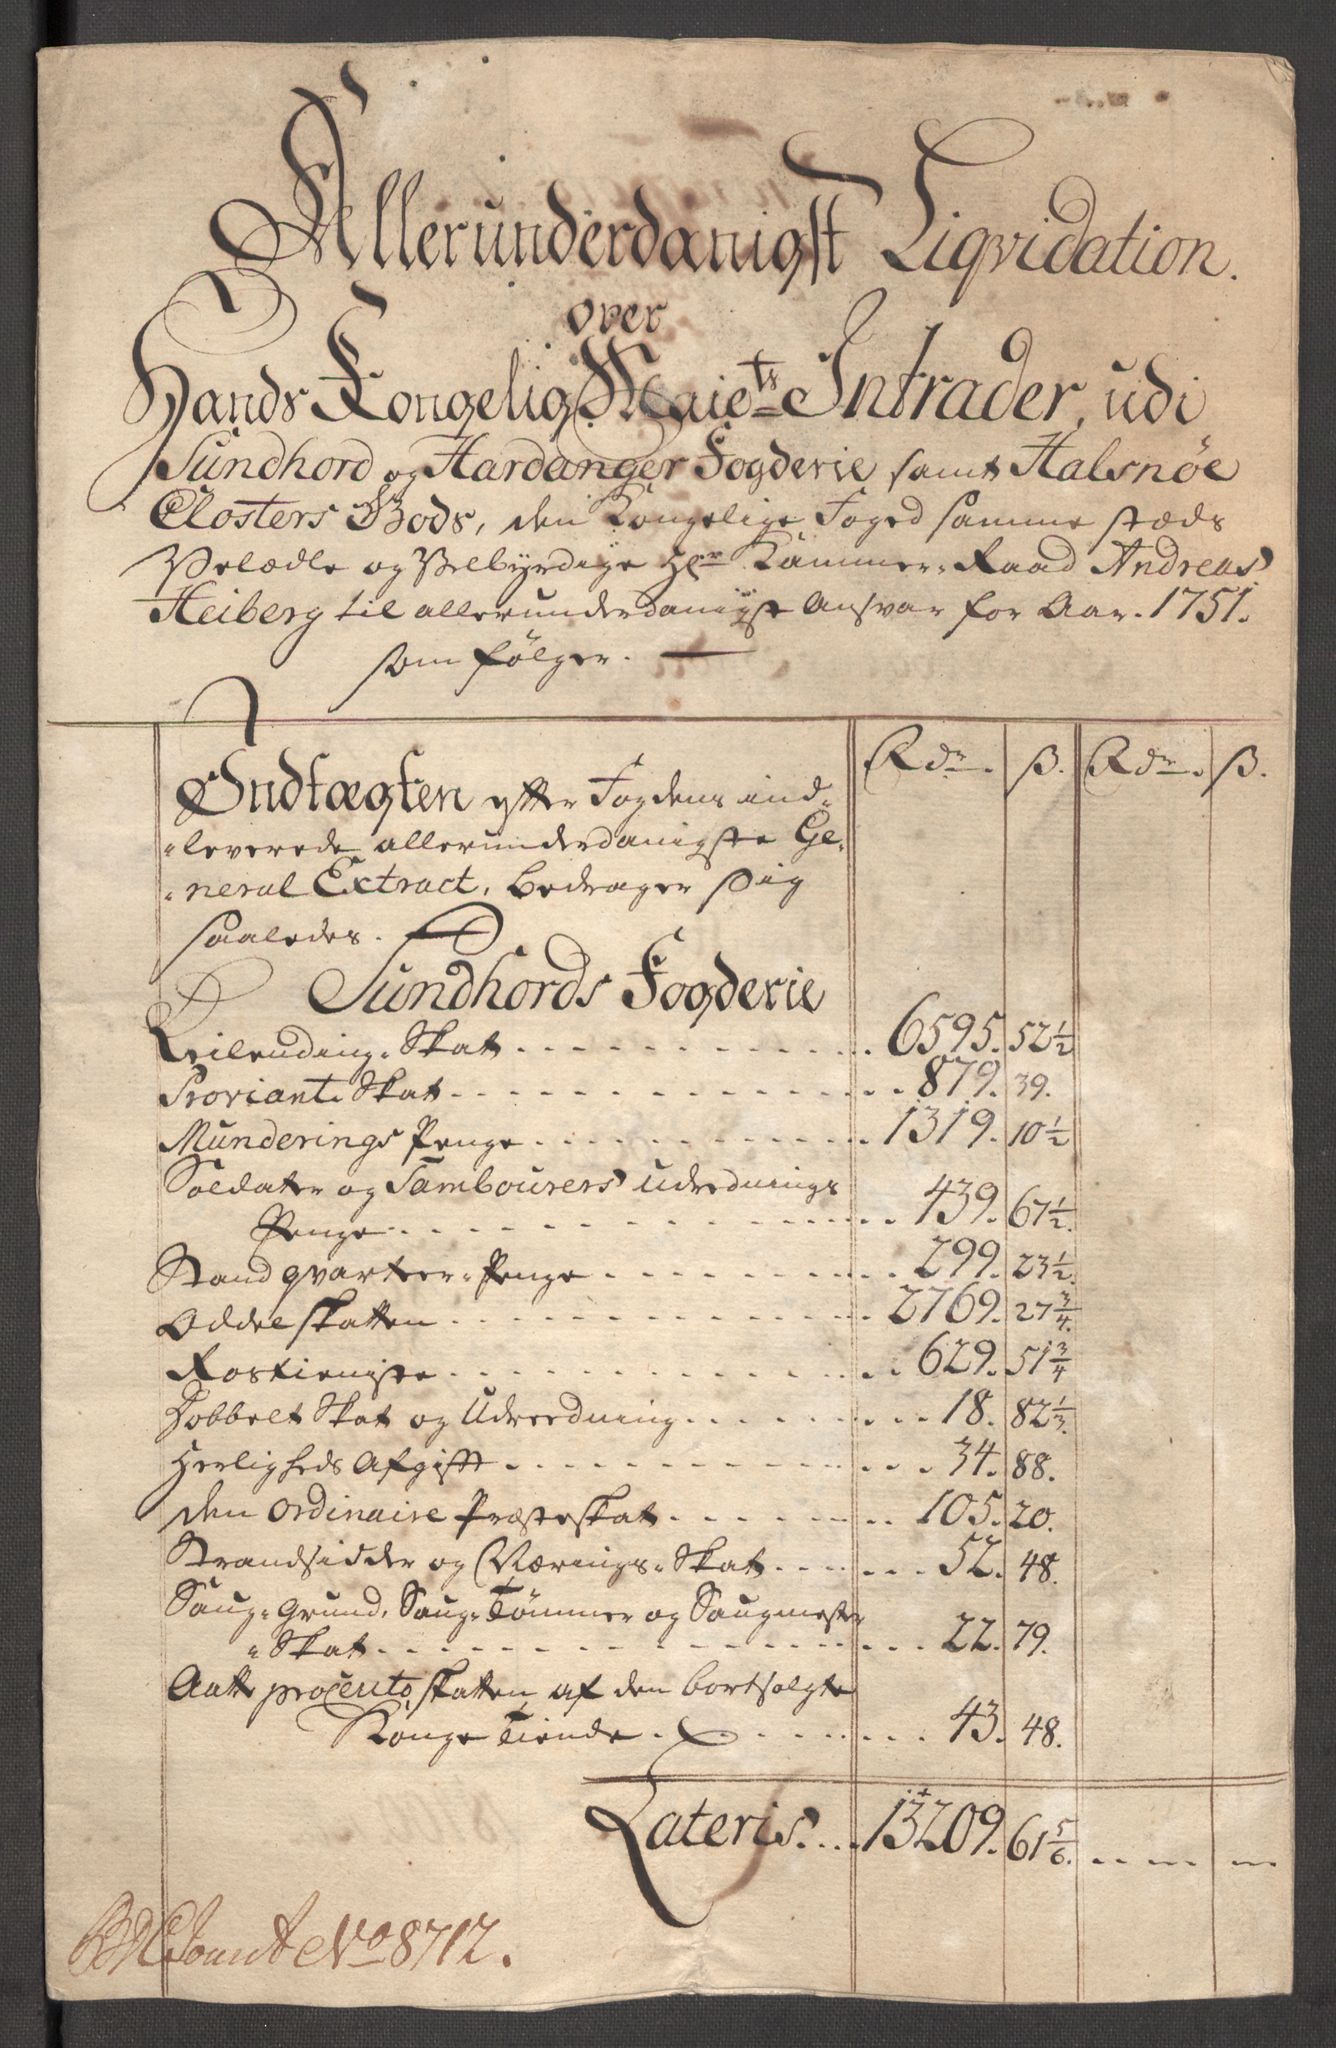 Allerunderdanigst Liqvidation.
over
Hands Kongelig Maie^ts Intrader, udi
Sundhord og Hardanger Fogderie samt Halsnöe
Closters Gods, den Kongelige Foged samme stæds
Velædle og Velbyrdige Hr. Kammer-Raad Andreas
Heiberg til allerunderdanigst Ansvar for Aar. 1751.
som fölger.
Rdr. ß. Rdr. ß.
Indtægten efter Fogdens ind-
leverede allerunderdanigste Ge-
neral Extract, bedrager sig
saaledes.
Sundhords Fogderie
Leilending-Skat 6595. 52 1/2
Proviant-Skat 879. 39.
Munderings Penge 1319. 10 1/2
Soldater og Tambourers udrednings
Penge 439. 67 1/2.
Standqvarteer-Penge 299. 23 1/2.
Oddelskatten 2769. 27 3/4.
Rostieniste 629. 51 3/4
Dobbelt Skat og Udreedning 18. 82 1/3.
Herligheds Afgift 34. 88.
den ordinaire Præsteskat 105. 20.
Strandsidder og Nærings-Skat 52. 48.
Saug-Grund, Saug-Tömmer og Saugmester
-Skat 22. 79.
Aatte procento skatten af den bortsolgte
Konge Tiende 43. 48.
Lateris 13209. 61 5/6.
No 8712.